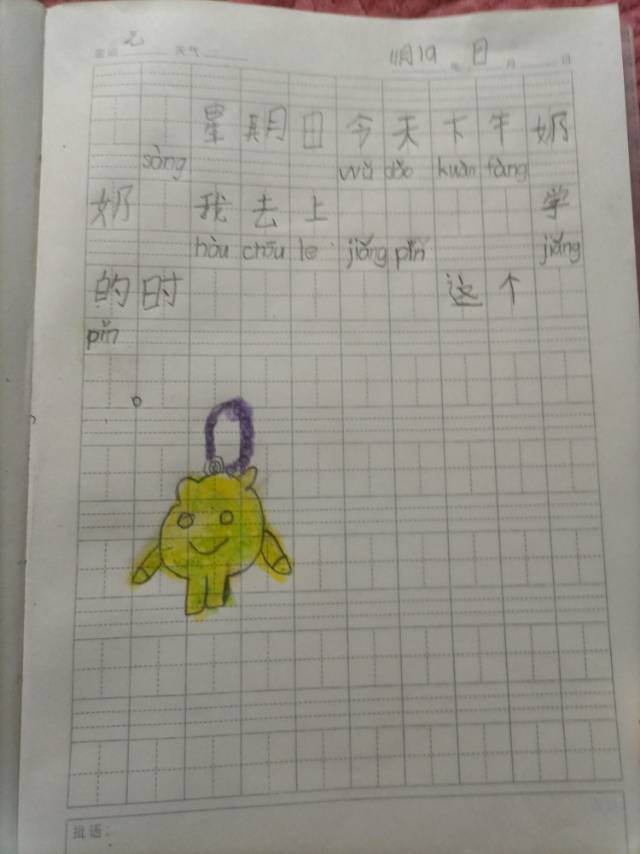 星期 天气 11月19 日
星期日今天下午奶
sòng wǔ dǎo kuàn fàng
奶 我去上 学
hòu chōu le jiǎng pǐn jiǎng
的时 这个
pǐn
。
批语：